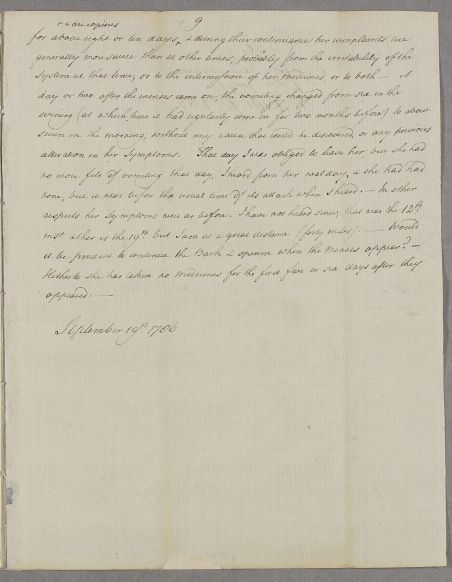 9
& are copious
for above eight or ten days, & during their continuance her complaints are
generally more severe than at other times, probably from the irritability of the
System at that time, or to the intermission of her medicines or to both — A
day or two after the menses came on, the vomiting changed from six in the
evening (at which time it had regularly come on for two months before) to about
seven in the morning, without any cause that could be discovered, or any previous
alteration in her Symptoms. That day I was obliged to leave her but she had
no more fits of vomiting that day, I heard from her next day, & she had had
none, but it was before the usual time of its attack when I heard. — In other
respects her Symptoms were as before. I have not heard since, that was the 12th
inst. & this is the 19th but I am at a great distance (forty miles). — Would
it be prudent to continue the Bark & opium when the menses appear? —
Hitherto she has taken no medicines for the first five or six days after they
appeared. —
September 19th 1786